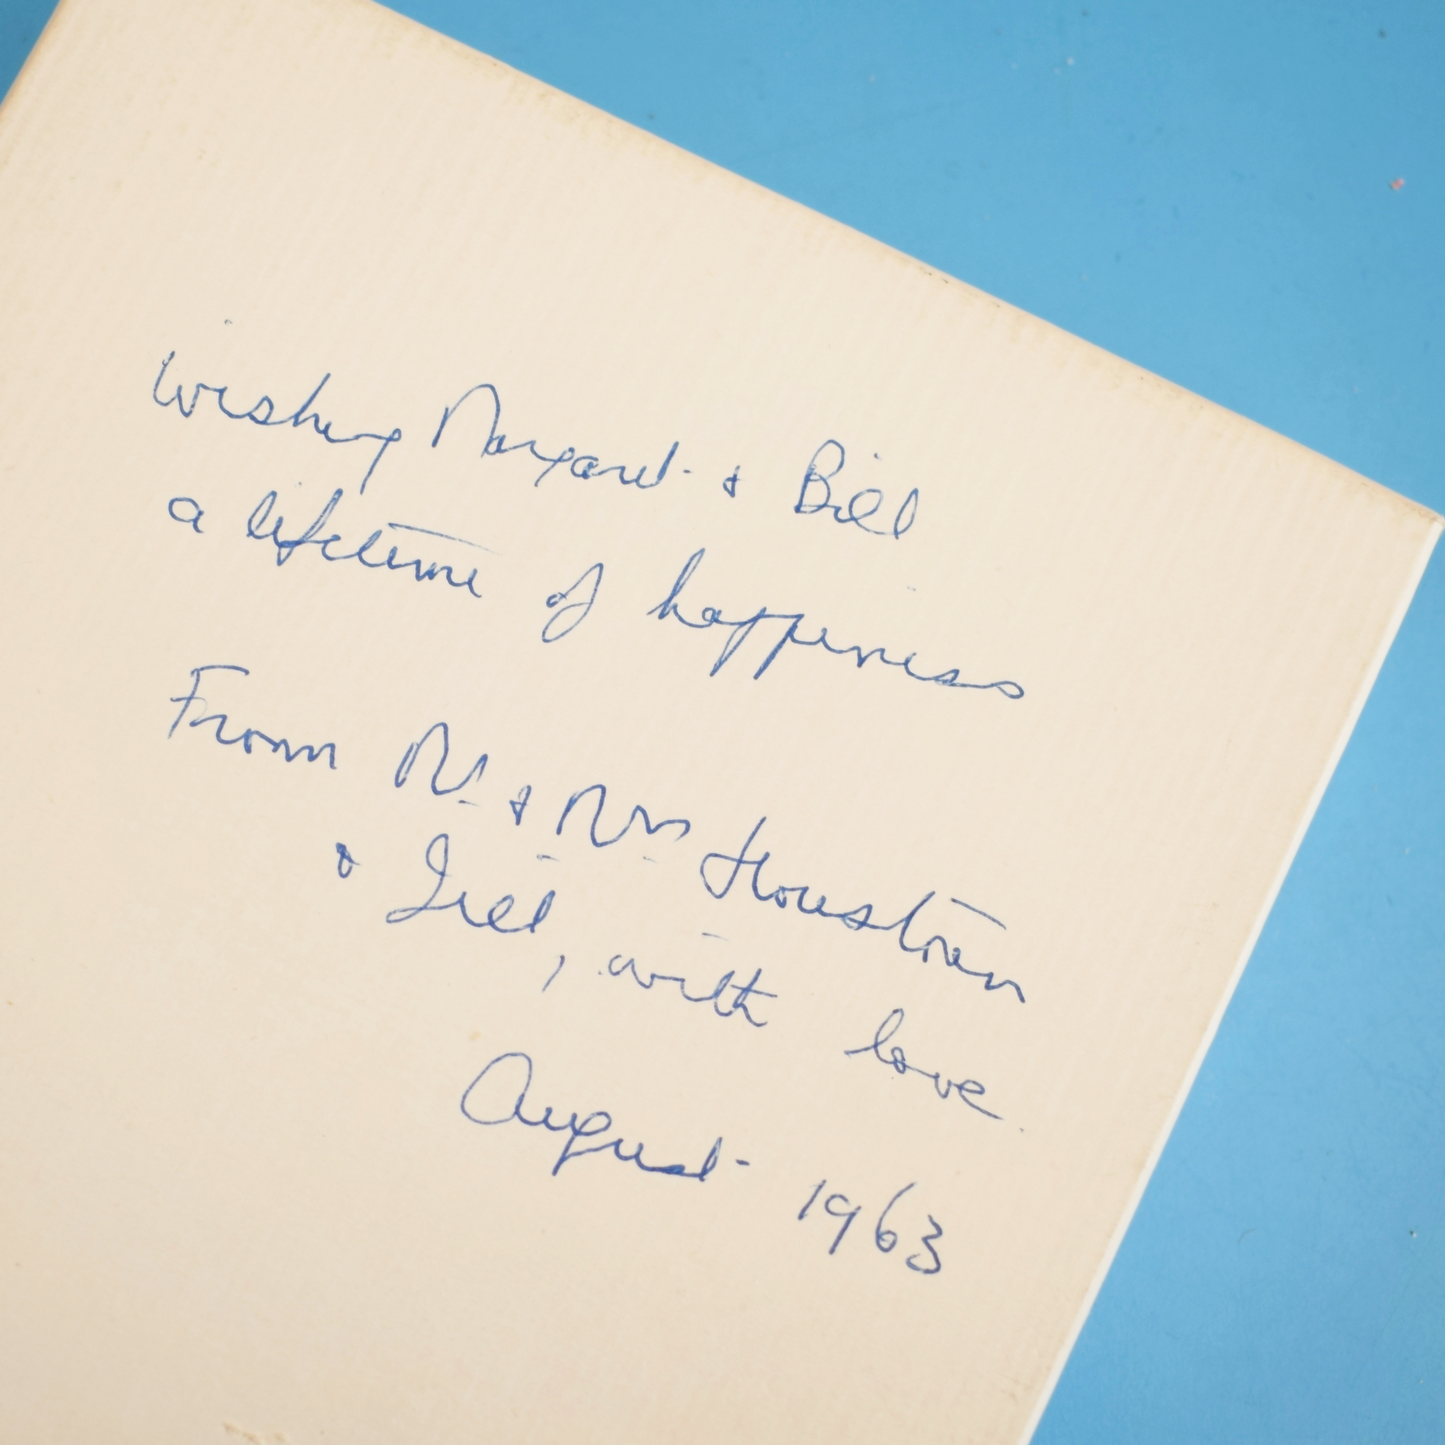 Wishing Margaret & Bill
a lifetime of happiness
From Mr. & Mrs. Houston
& Jill, with love.
August 1963